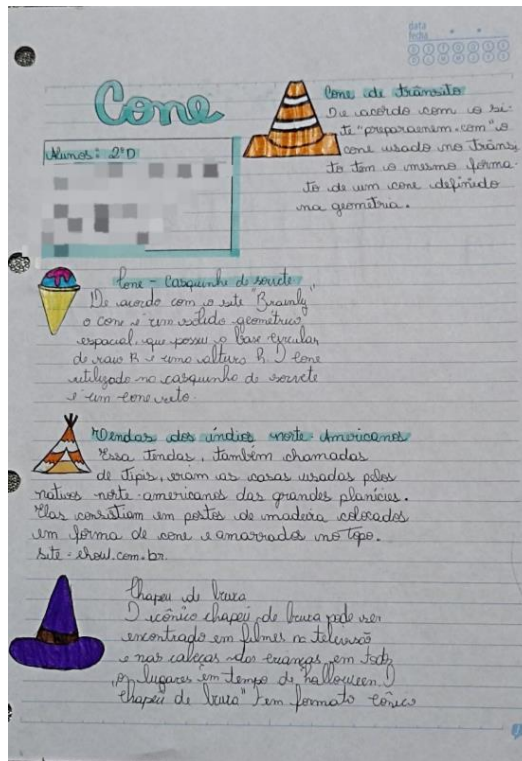 data
fecha
Cone
Alunos: 2ºD
Cone de trânsito
De acordo com o si-
te "preparaenem.com" o
cone usado no trânsi-
to tem o mesmo forma-
to de um cone definido
na geometria.
Cone - Casquinha de sorvete
De acordo com o site "Brainly"
o cone é um solido geométrico
espacial, que possui a base circular
de raio R e uma altura h. O cone
utilizado na casquinha de sorvete
é um cone reto.
Tendas dos índios norte Americanos
Essa tendas, também chamadas
de Tipis, eram as casas usadas pelos
nativos norte-americanos das grandes planícies.
Elas consistiam em postes de madeira colocados
em forma de cone e amarrados no topo.
site - ehow.com.br
Chapeu de bruxa
O icônico chapeu de bruxa pode ser
encontrado em filmes na televisão
e nas cabeças das crianças em todos
os lugares em tempo de halloween. O
chapeu de bruxa" tem formato cônico